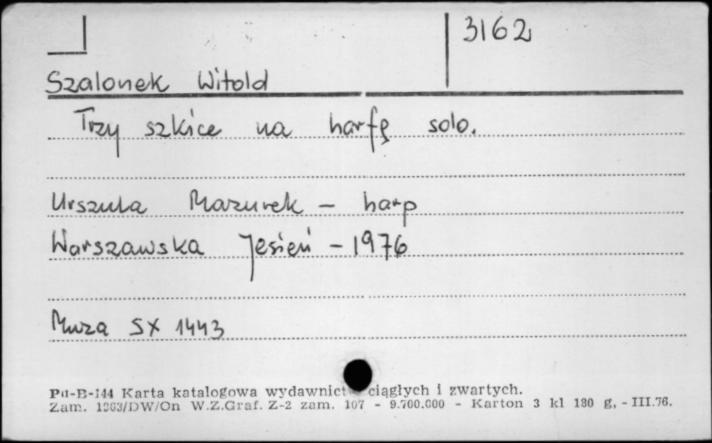 3162
Szalonek Witold
Trzy szkice na harfę solo.
Urszula Mazurek - harp
Warszawska Jesień - 1976
Muza SX 1443
Pu-B-144 Karta katalogowa wydawnictw ciągłych i zwartych.
Zam. 1263/DW/On W.Z.Graf. Z-2 zam. 107 - 9.700.000 - Karton 3 kl 180 g. - III.76.